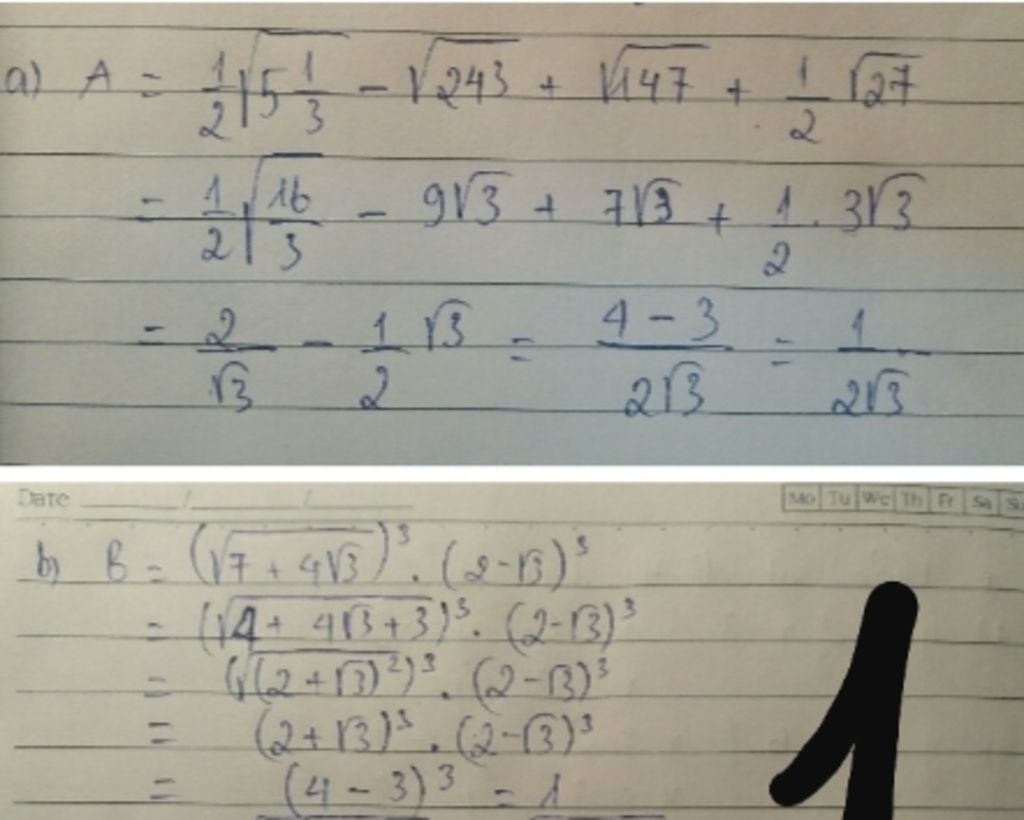 a) A = 1/2 √(5 1/3) - √243 + √147 + 1/2 √27
= 1/2 √(16/3) - 9√3 + 7√3 + 1/2 . 3√3
= 2/√3 - 1/2 √3 = (4 - 3)/(2√3) = 1/(2√3)
Date / / Mo Tu We Th Fr Sa Su
b) B = (√(7 + 4√3))³ . (2-√3)³
= (√(4 + 4√3+3))³ . (2-√3)³
= (√((2+√3)²))³ . (2-√3)³
= (2+√3)³ . (2-√3)³
= (4 - 3)³ = 1
1